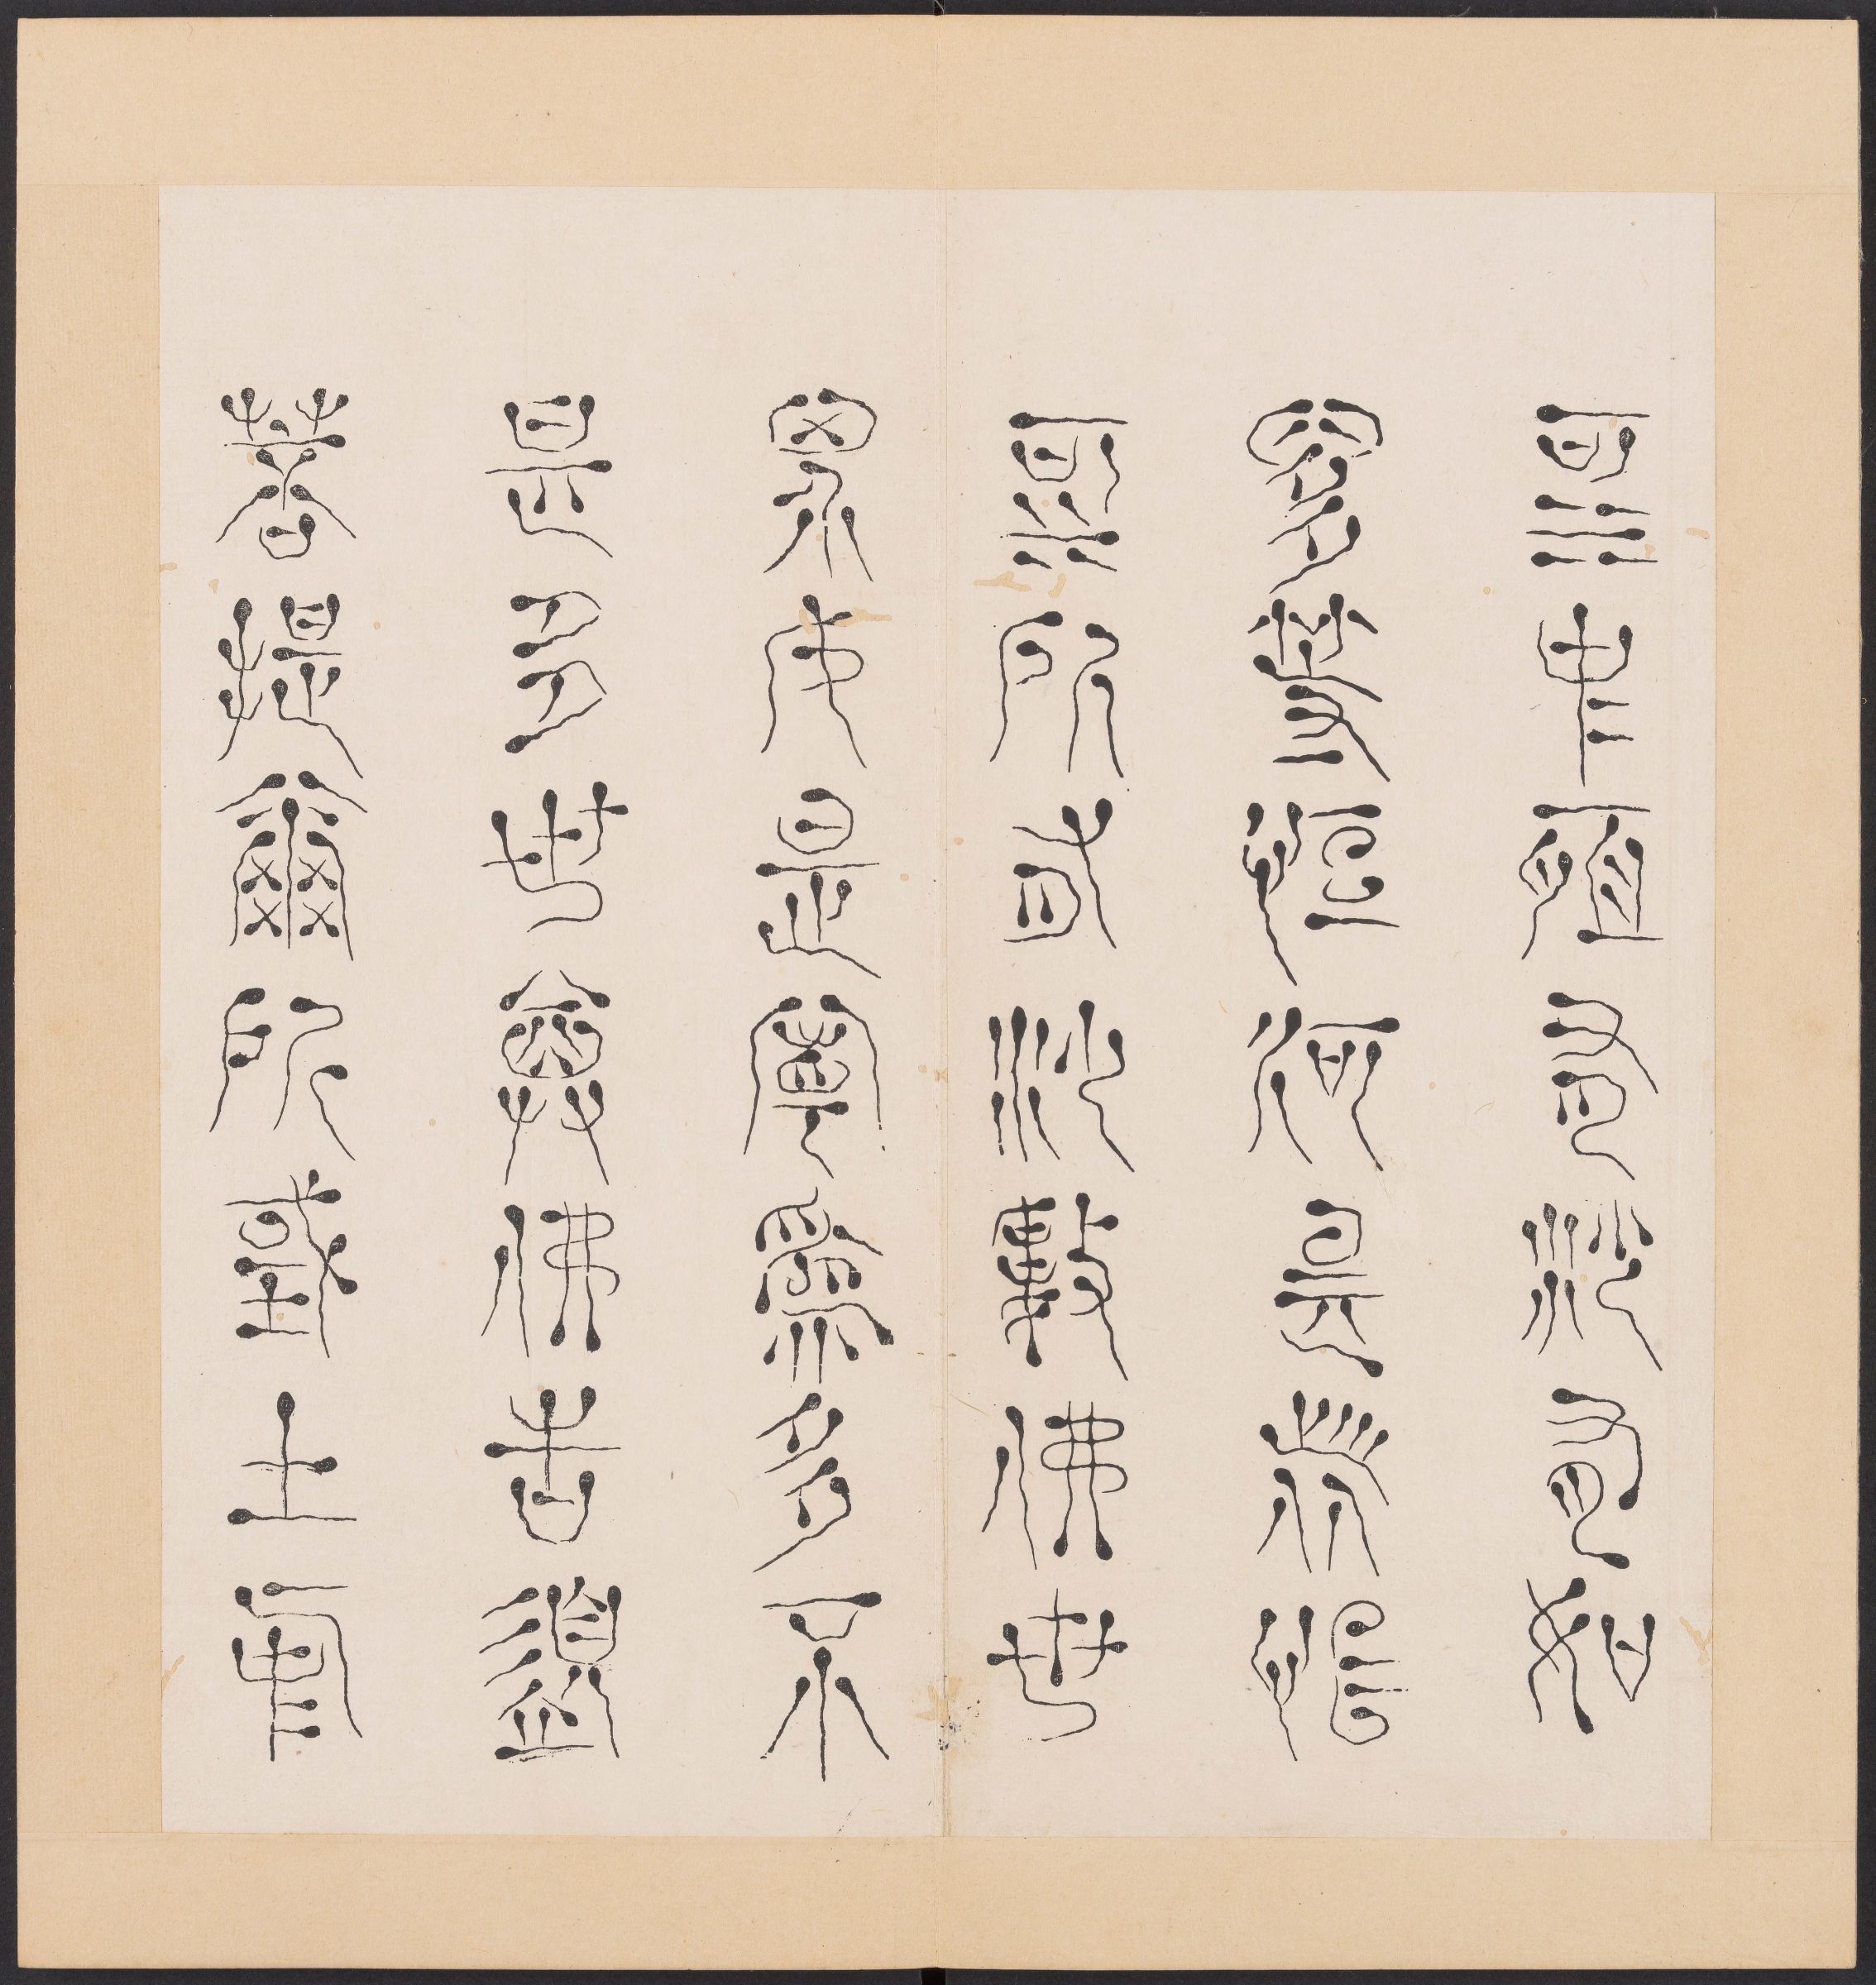 河中所有沙有如
是等恒河是諸恒
河所有沙數佛世
界如是寧為多不
甚多世尊佛告須
菩提爾所國土中